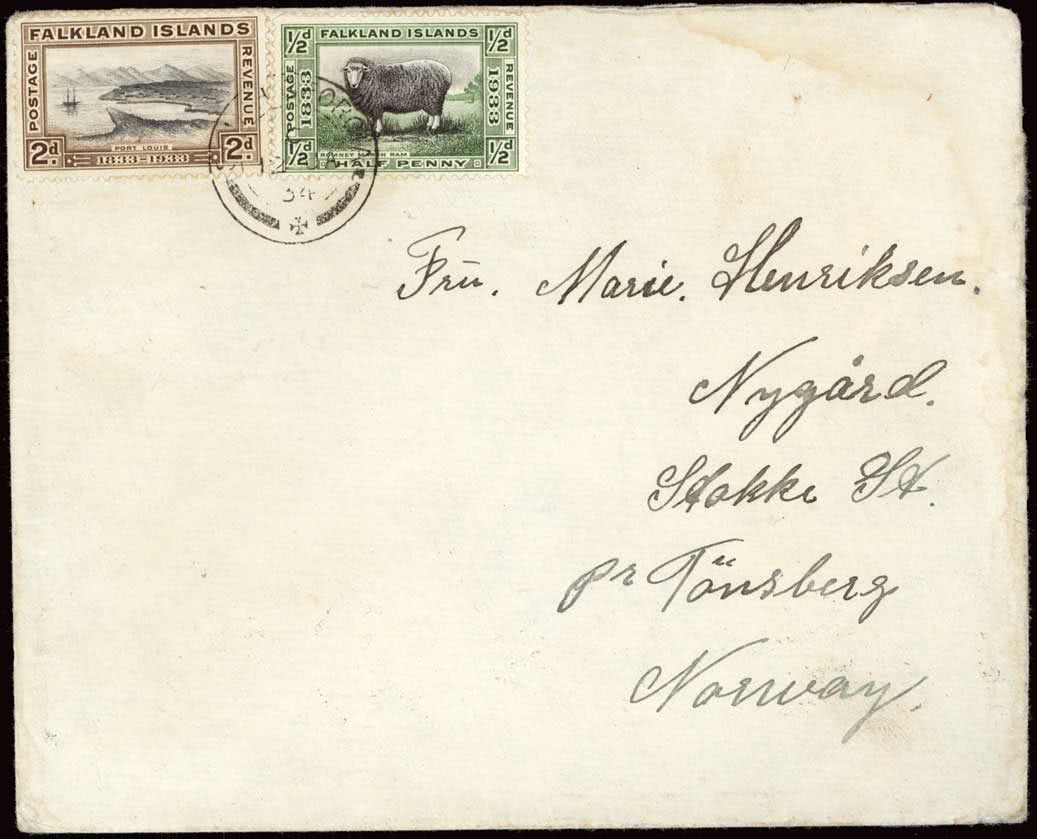 FALKLAND ISLANDS
POSTAGE
REVENUE
PORT LOUIS
2d. 1833-1933 2d.
½d FALKLAND ISLANDS ½d
POSTAGE
1833
1933
REVENUE
ROMNEY MARSH RAM
½d HALF PENNY ½d
34
Frū. Marie. Henriksen.
Nygård.
Stokke St.
pr Tönsberg
Norway.